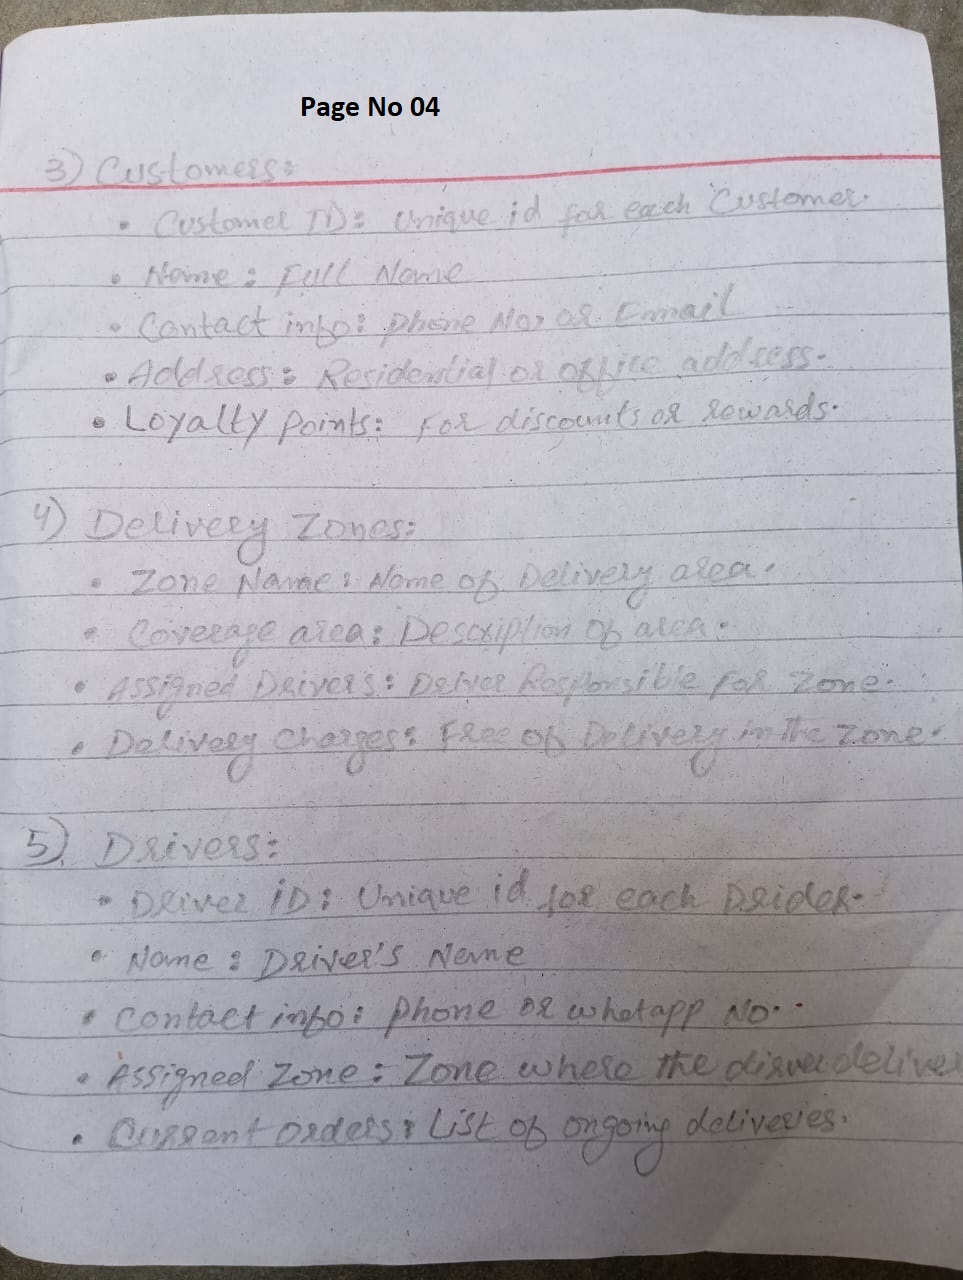 Page No 04
3) Customers:
• Customer ID: Unique id for each Customer.
• Name: Full Name
• Contact info: Phone No, or Email
• Address: Residential or office address.
• Loyalty Points: For discounts or rewards.
4) Delivery Zones:
• Zone Name: Name of Delivery area.
• Coverage area: Description of area.
• Assigned Drivers: Driver Responsible for Zone.
• Delivery Charges: Free of Delivery in the Zone.
5) Drivers:
• Driver iD: Unique id for each Drider.
• Name: Driver's Name
• Contact info: Phone or whatapp No.
• Assigned Zone: Zone where the disver deliver
• Current orders: List of ongoing deliveries.